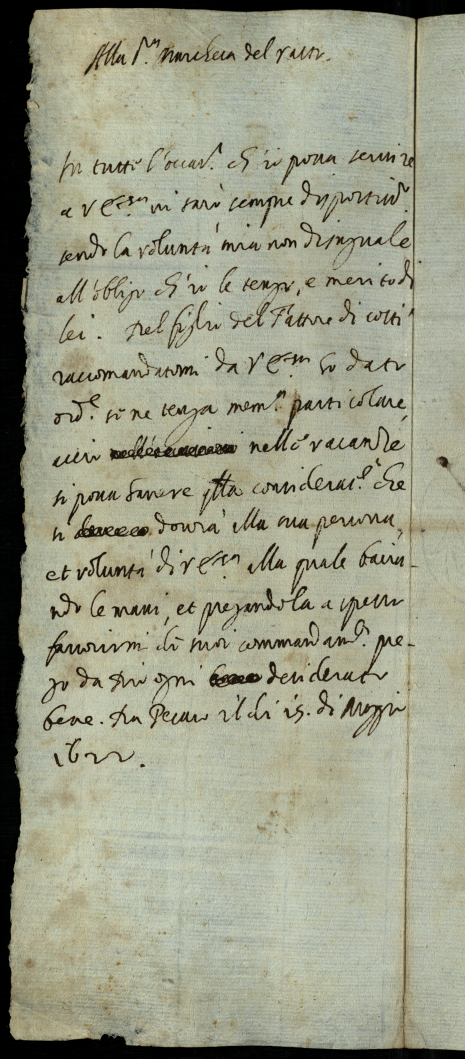 Alla S.ra Marchesa del Vasto.
In tutte l'occas.i ch'io possa servire
a V Ecc.za mi sarò sempre dispostiss.o
sendo la voluntà mia non disuguale
all'obligo ch'io le tengo, e merito di
lei. Nel figlio del Fattore di costì
raccomandatomi da V Ecc.za ho dato
ord.e se ne tenga mem.a particolare,
acciò nelle vacanze
si possa havere q.lla considerat.e che
si dovrà alla sua persona,
et voluntà di V Ecc.za alla quale bacia-
ndo le mani, et pregandola a spesso
favorirmi de suoi commandam.ti pre-
go da Dio ogni desiderato
bene. Da Pesaro il dì 15. di Maggio
1622.